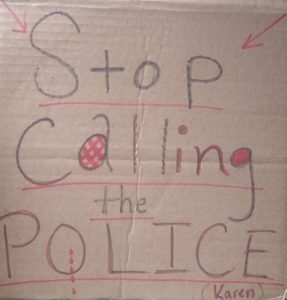 Stop
Calling
the
POLICE
(Karen)